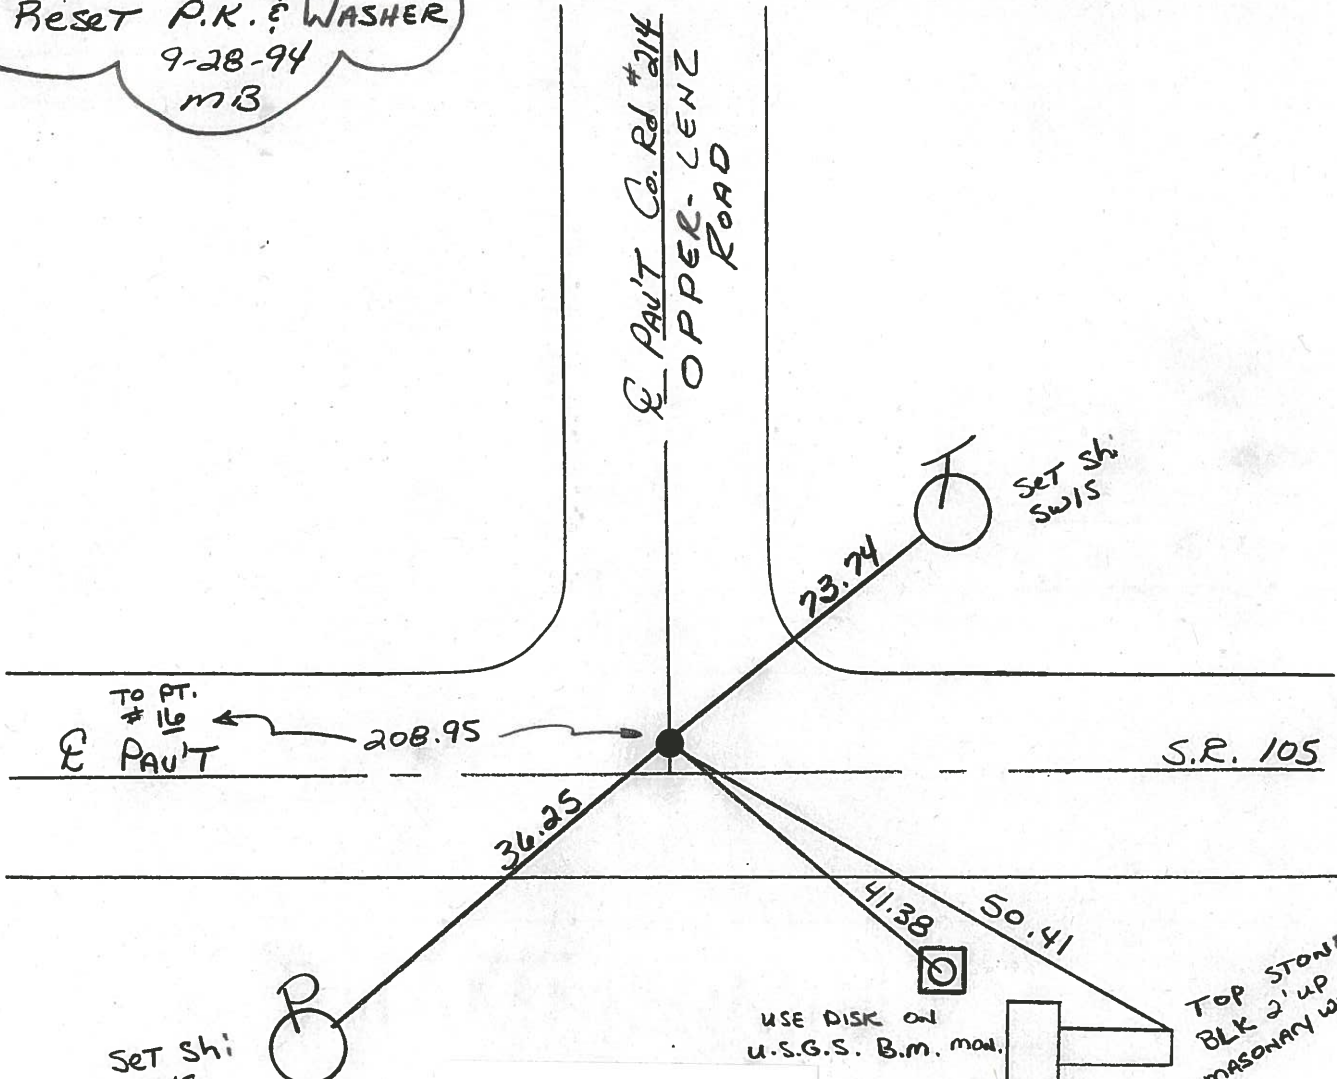 Reset P.K. & WASHER
9-28-94
MB
℄ PAV'T Co. Rd #214
OPPER-LENZ
ROAD
SET Shi
SW/S
73.74
TO PT.
# 16
℄ PAV'T
208.95
S.R. 105
36.25
41.38
50.41
P
SET Shi
USE DISK ON
U.S.G.S. B.M. MON.
TOP STONE
BLK 2' UP
MASONARY W